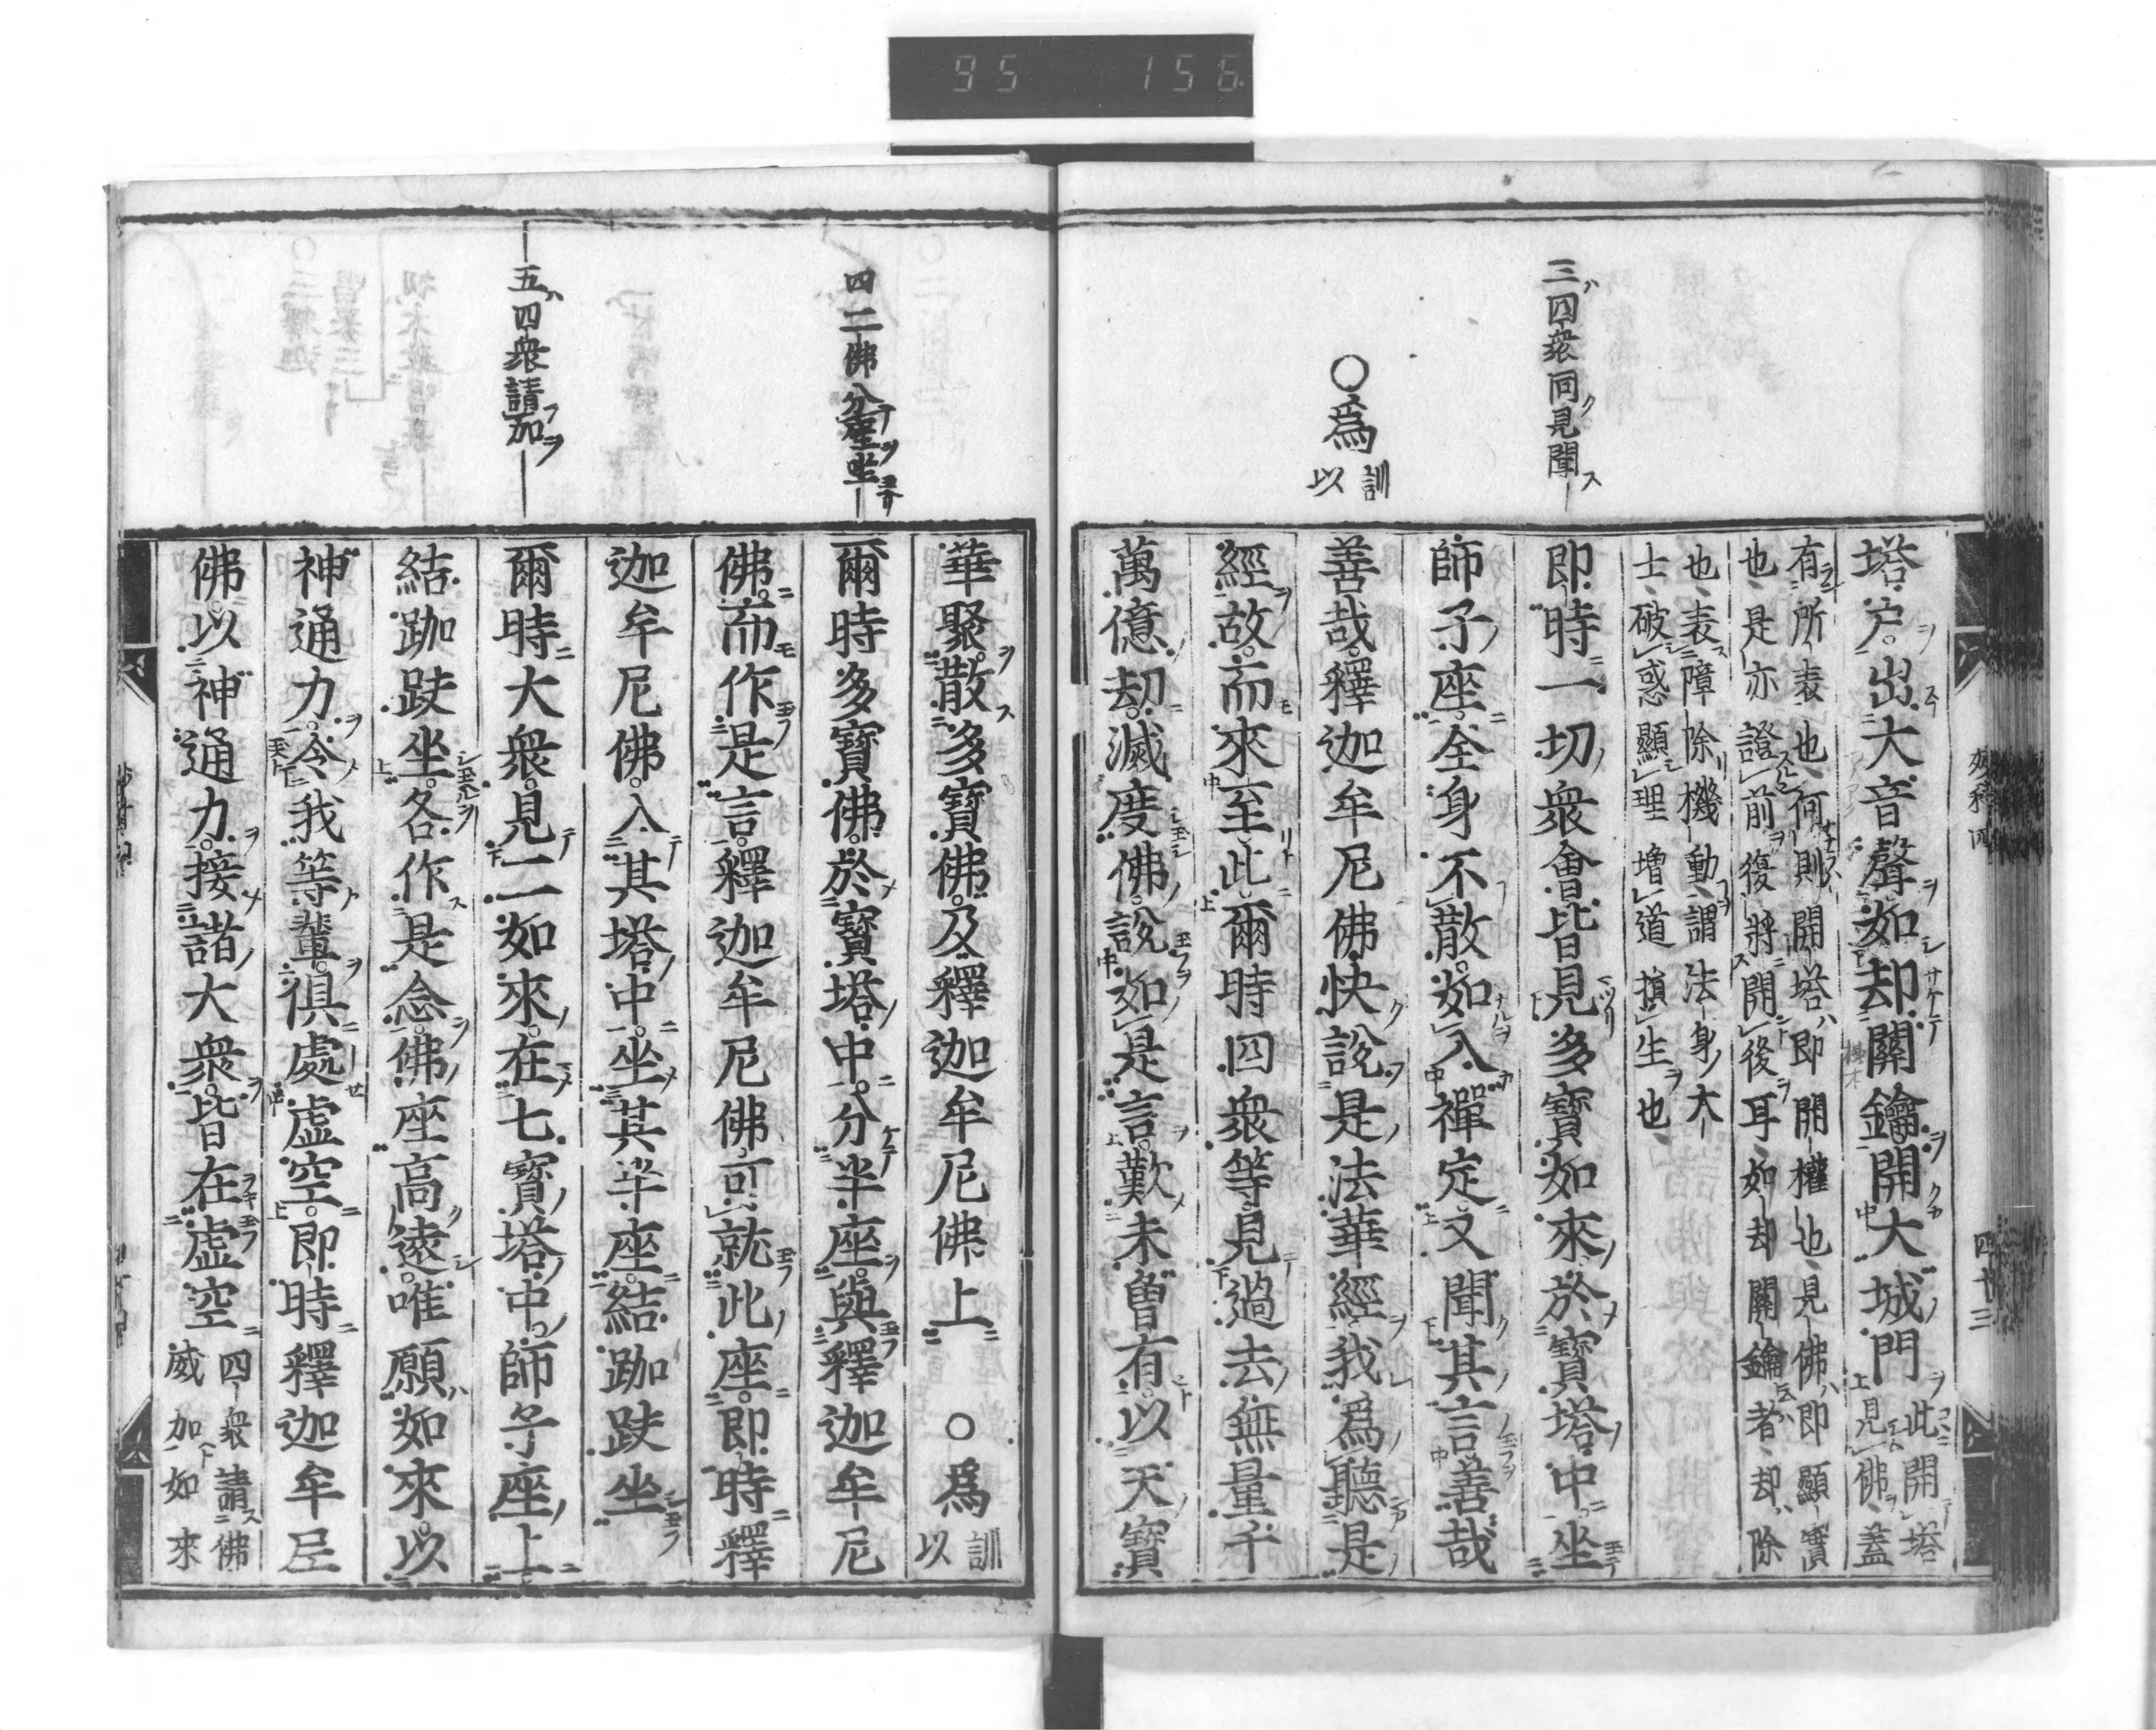 95 156
三四衆同見聞
〇爲訓以
塔戸出大音聲如却關鑰開大城門此開塔見佛蓋
有所表也何則開塔即開權也見佛即顯實
也是亦證前復將開後耳如却關鑰者却除
也表障除機動謂法身大
士破惑顯理增道損生也
即時一切衆會皆見多寶如來於寶塔中坐
師子座全身不散如入禪定又聞其言善哉
善哉釋迦牟尼佛快說是法華經我爲聽是
經故而來至此爾時四衆等見過去無量千
萬億劫滅度佛說如是言歎未曾有以天寶
四十三
四二佛分座坐
五四衆請加
華聚散多寶佛及釋迦牟尼佛上〇爲訓以
爾時多寶佛於寶塔中分半座與釋迦牟尼
佛而作是言釋迦牟尼佛可就此座即時釋
迦牟尼佛入其塔中坐其半座結跏趺坐
爾時大衆見二如來在七寶塔中師子座上
結跏趺坐各作是念佛座高遠唯願如來以
神通力令我等輩俱處虛空即時釋迦牟尼
佛以神通力接諸大衆皆在虛空四衆請佛威加如來